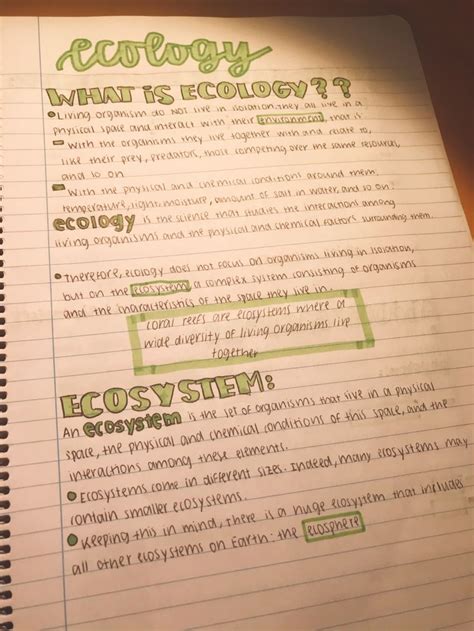 ecology
WHAT IS ECOLOGY??
•Living organism do NOT live in isolation, they all live in a
physical space and interact with their environment, that is
- With the organisms they live together with and relate to,
like their prey, predators, those competing over the same resources,
and so on
- With the physical and chemical conditions around them.
temperature, light, moisture, amount of salt in water, and so on.
ecology is the science that studies the interactions among
living organisms and the physical and chemical factors surrounding them.
• Therefore, ecology does not focus on organisms living in isolation,
but on the ecosystem, a complex system consisting of organisms
and the characteristics of the space they live in.
Coral reefs are ecosystems where a
wide diversity of living organisms live
together
ECOSYSTEM:
An ecosystem is the set of organisms that live in a physical
space, the physical and chemical conditions of this space, and the
interactions among these elements.
• Ecosystems come in different sizes. Indeed, many ecosystems may
contain smaller ecosystems.
• Keeping this in mind, there is a huge ecosystem that includes
all other ecosystems on Earth: the ecosphere